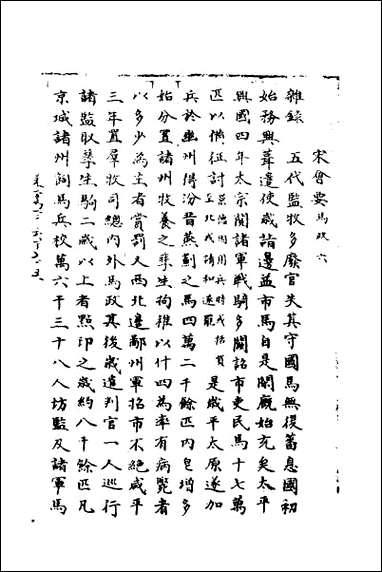 宋會要馬政六
雜錄 五代監牧多廢官失其守國馬無復蕃息國初
始務興葺遣使歲詣邊益市馬自是閑廄始充矣太平
興國四年太宗閱諸軍戰騎多闕詔市吏民馬十七萬
匹以備征討 是歲平太原遂加
兵於幽州得汾晉燕薊之馬四萬二千餘匹內皂增多
始分置諸州牧養之孳生拘稚以什四為率有病斃者
以多少為主者賞罰又西北邊鄜州軍招市不絕咸平
三年置羣牧司總內外馬政其後歲遣判官一人巡行
諸監取孳生駒二歲以上者點印之歲約八千餘匹凡
京城諸州飼馬兵校萬六千三十八人坊監及諸軍馬